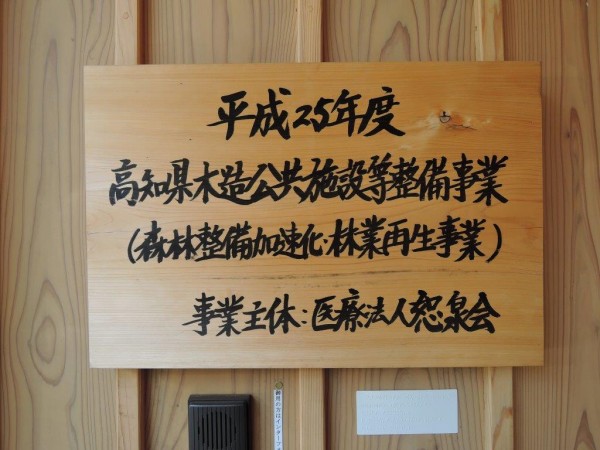 平成25年度
高知県木造公共施設等整備事業
(森林整備加速化・林業再生事業)
事業主体:医療法人恕泉会